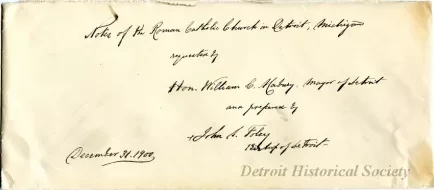 Notes of the Roman Catholic Church in Detroit, Michigan
requested by
Hon. William C. Maybury. Mayor of Detroit
and prepared by
John S. Foley
Bishop of Detroit
December 31. 1900.
Detroit Historical Society